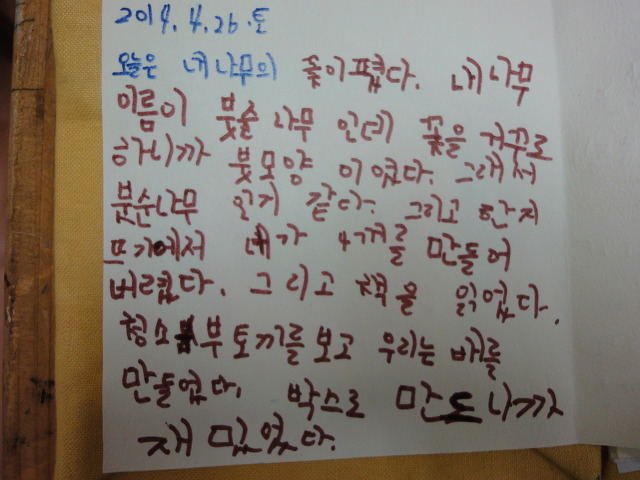 2014. 4. 26. 토
오늘은 내 나무의 꽃이 폈다. 내 나무
이름이 붓순 나무 인데 꽃을 거꾸로
하니까 붓모양 이 었다. 그래서
붓순나무 인거 같다. 그리고 한지
뜨기에서 내가 4개를 만들어
버렸다. 그리고 책을 읽었다.
청소부 토끼를 보고 우리는 배를
만들었다. 박스로 만드니까
재 밌었다.